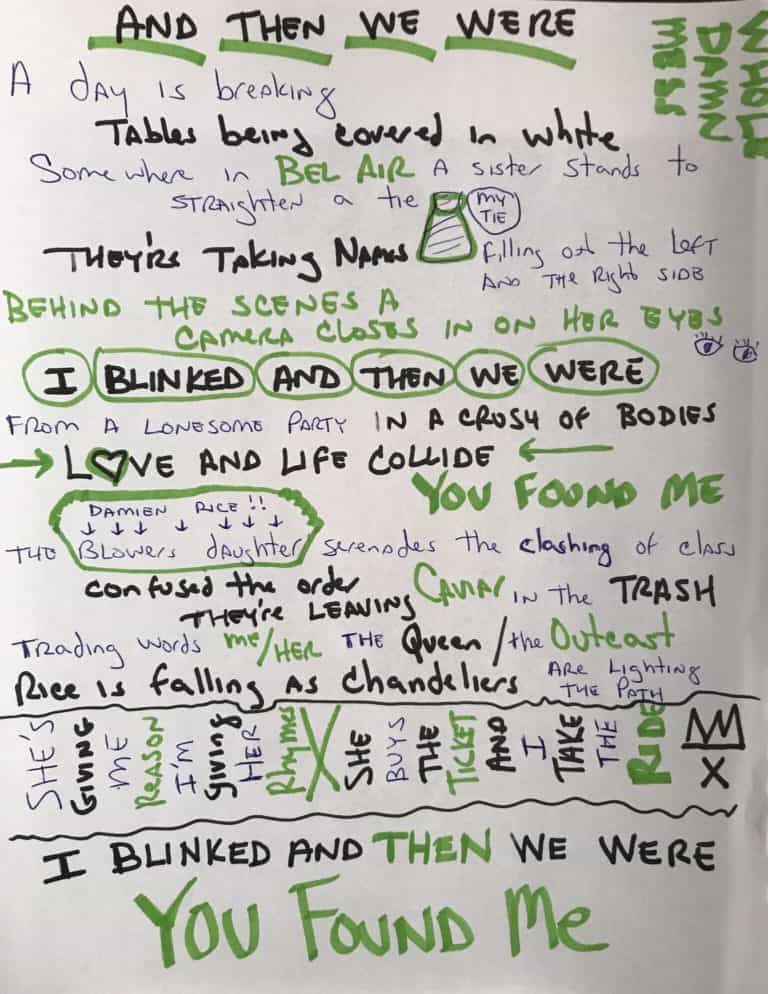 AND THEN WE WERE
WHOLE
DAMN
MESS
A day is breaking
Tables being covered in white
Somewhere in BEL AIR A sister stands to
STRAIGHTEN a tie
MY
TIE
THEY'RE TAKING NAMES
filling out the left
AND THE Right SIDE
BEHIND THE SCENES A
CAMERA CLOSES IN ON HER EYES
I BLINKED AND THEN WE WERE
FROM A LONESOME PARTY IN A CRUSH OF BODIES
LOVE AND LIFE COLLIDE
YOU FOUND ME
DAMIEN RICE!!
THE Blowers daughter serenades the clashing of class
confused the order
THEY're LEAVING CAVIAR IN the TRASH
Trading words me/HER THE Queen/the Outcast
Rice is falling As chandeliers ARE Lighting
THE PATH
SHE'S GIVING ME REASON I'M giving HER Rhymes
SHE BUYS THE TICKET AND I TAKE THE RIDE
X
I BLINKED AND THEN WE WERE
YOU FOUND Me